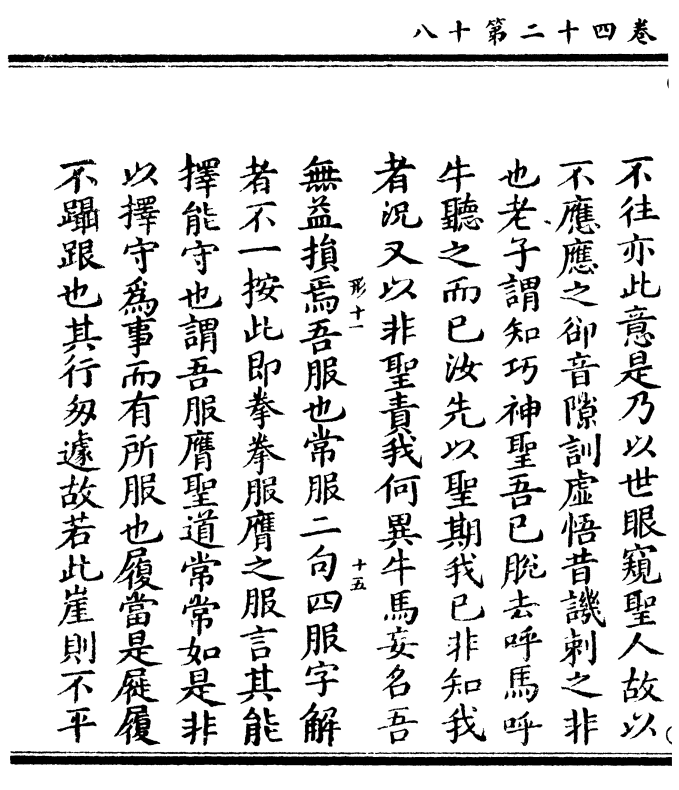 卷四十二第十八
不往亦此意是乃以世眼窺聖人故以
不應應之卻音隙訓虛悟昔譏刺之非
也老子謂知巧神聖吾已脫去呼馬呼
牛聽之而已汝先以聖期我已非知我
者況又以非聖責我何異牛馬妄名吾
無益損焉吾服也常服二句四服字解
形十一
十五
者不一按此即拳拳服膺之服言其能
擇能守也謂吾服膺聖道常常如是非
以擇守為事而有所服也履當是屣履
不躡跟也其行匆遽故若此崖則不平